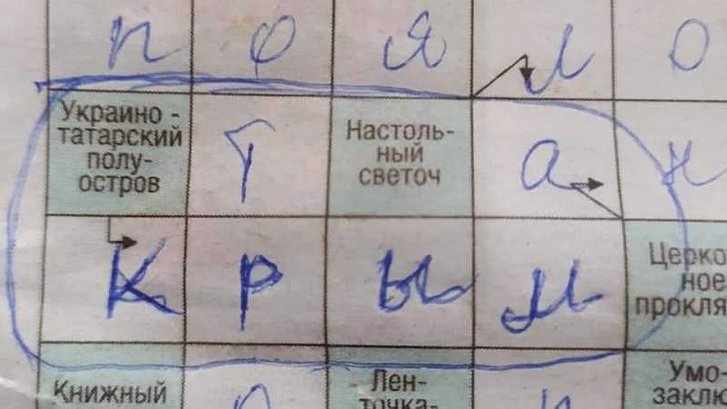 п о я л о
Украино-
татарский
полу-
остров
т
Настоль-
ный
светоч
а н
К Р Ы М
Церко
ное
прокля
Книжный
о
Лен-
точка-
Умо-
заклю